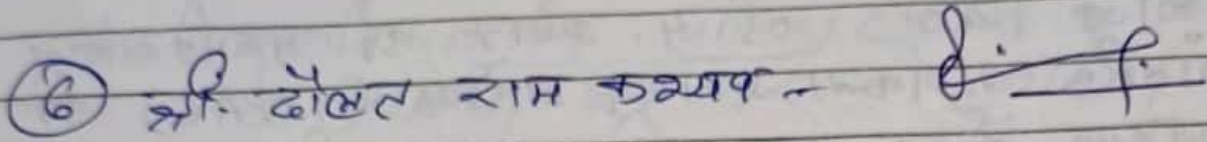 6 श्री. दौलत राम कश्यप -